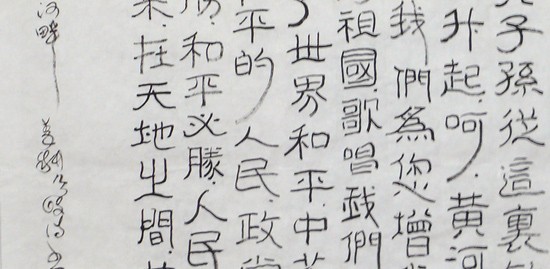 子孫從這裏
升起，呵，黃河
我們為您增
祖國，歌唱我們
世界和平，中
平的人民，政黨
勝，和平必勝，人民
天地之間，
河畔